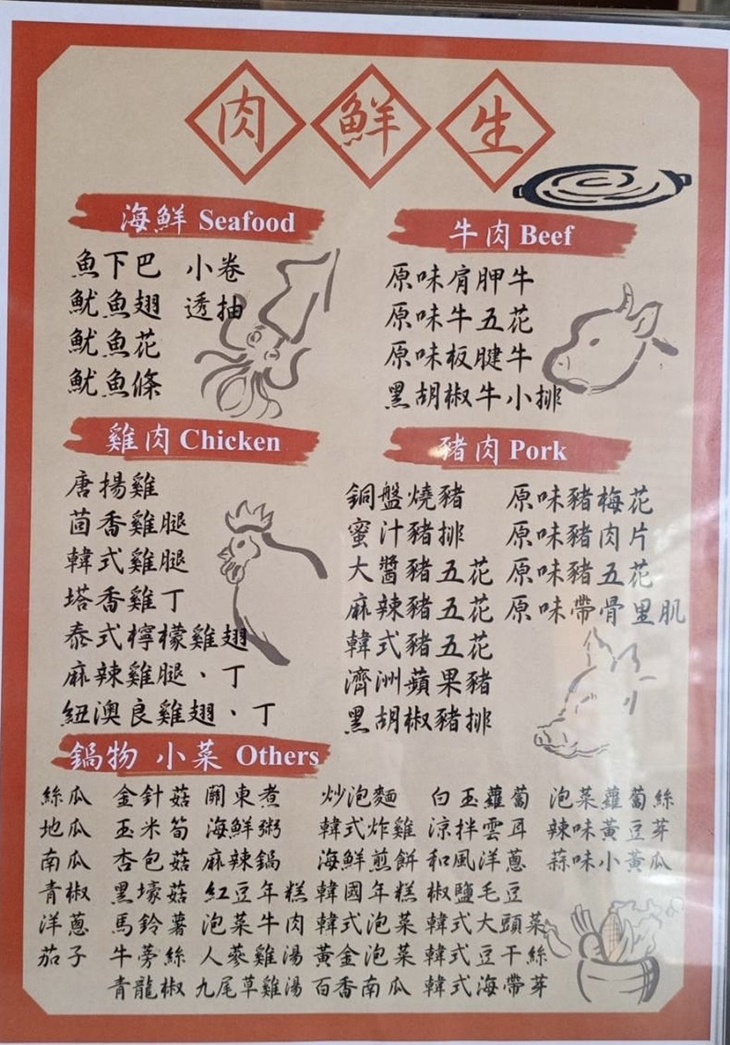 肉鮮生
海鮮 Seafood
魚下巴 小卷
魷魚翅 透抽
魷魚花
魷魚條
牛肉 Beef
原味肩胛牛
原味牛五花
原味板腱牛
黑胡椒牛小排
雞肉 Chicken
唐揚雞
茴香雞腿
韓式雞腿
塔香雞丁
泰式檸檬雞翅
麻辣雞腿、丁
紐澳良雞翅、丁
豬肉 Pork
銅盤燒豬 原味豬梅花
蜜汁豬排 原味豬肉片
大醬豬五花 原味豬五花
麻辣豬五花 原味帶骨里肌
韓式豬五花
濟洲蘋果豬
黑胡椒豬排
鍋物 小菜 Others
絲瓜 金針菇 關東煮 炒泡麵 白玉蘿蔔 泡菜蘿蔔絲
地瓜 玉米筍 海鮮粥 韓式炸雞 涼拌雲耳 辣味黃豆芽
南瓜 杏包菇 麻辣鍋 海鮮煎餅 和風洋蔥 蒜味小黃瓜
青椒 黑壕菇 紅豆年糕 韓國年糕 椒鹽毛豆
洋蔥 馬鈴薯 泡菜牛肉 韓式泡菜 韓式大頭菜
茄子 牛蒡絲 人蔘雞湯 黃金泡菜 韓式豆干絲
青龍椒 九尾草雞湯 百香南瓜 韓式海帶芽